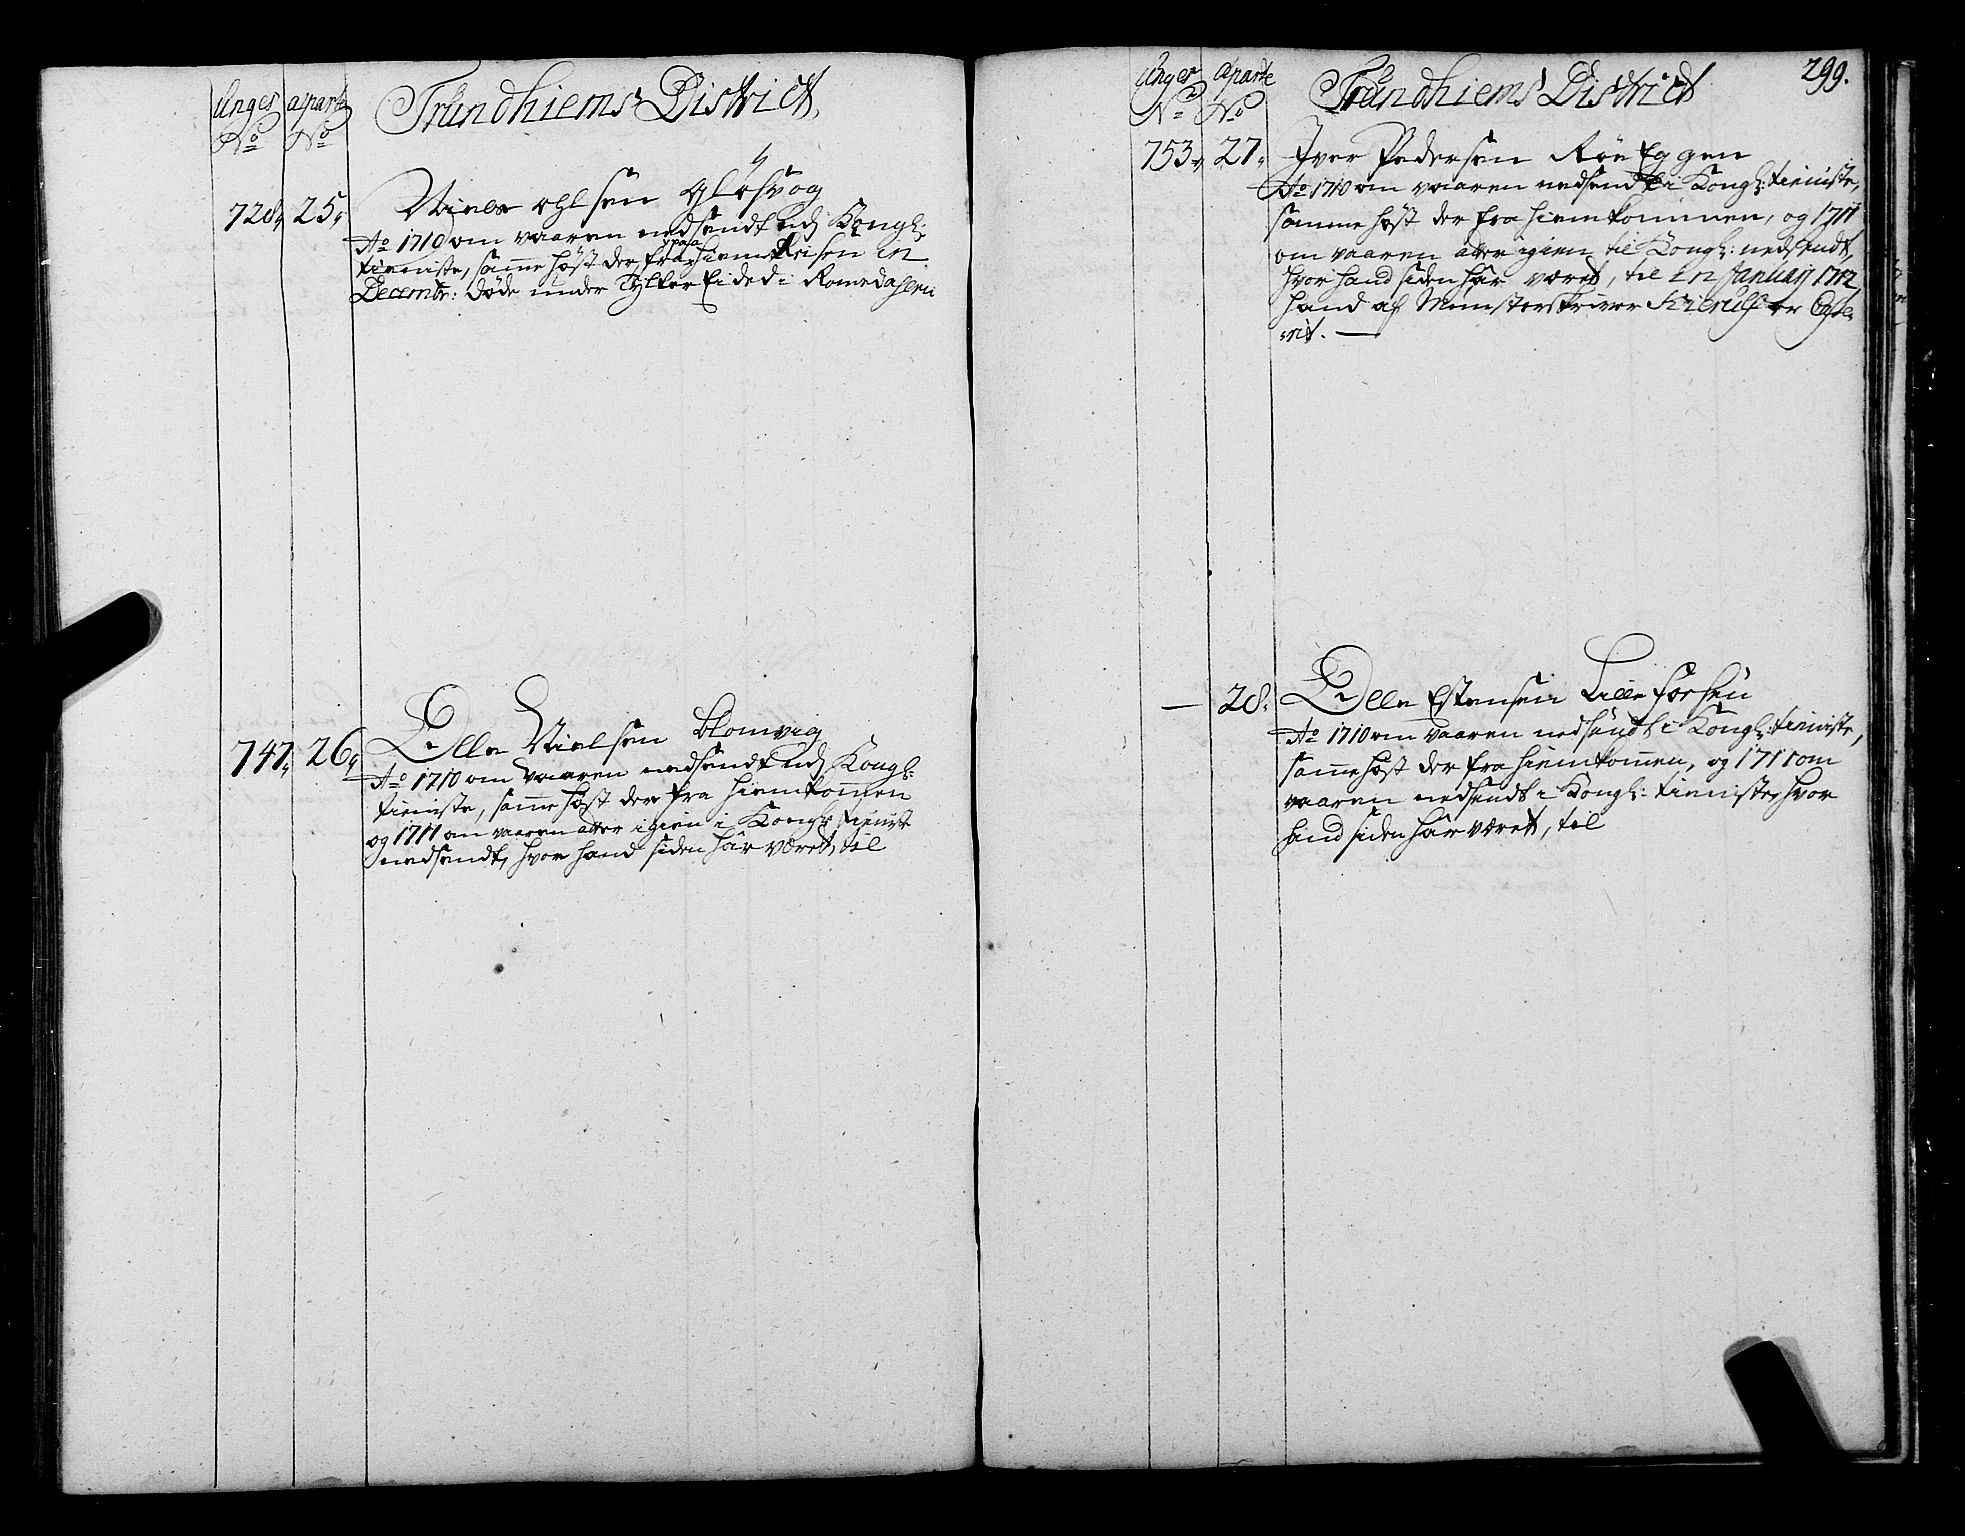 Unges aparte
No No
Trundhiems District,
728, 25, Niels ohlsen
Ao 1710 om vaaren nedsendt udj Kongl:
tieniste, samme høst der fra paa hiemReisen in
Decembr: døde under Eided i Romsdahlen
747, 26, Olle Nielsen Blomvig
Ao 1710 om vaaren nedsendt udj Kongl:
tieniste, samme høst der fra hiemkommen
og 1711 om vaaren atter igien i Kongl: tieniste
nedsendt, hvor hand siden har været, til
299.
Unges aparte
No No
Trundhiems District
753, 27, Iver Pedersen Røe Eggen
Ao 1710 om vaaren nedsendt i Kongl: tieniste,
samme høst der fra hiemkommen, og 1711
om vaaren atter igien til Kongl: nedsendt,
hvor hand siden har været, til in Januarij 1712
hand af Mønsterskriver er
— 28, Olle Estensen Lille Forsen
Ao 1710 om vaaren nedsendt i Kongl: tieniste,
samme høst der fra hiemkommen, og 1711 om
vaaren nedsendt i Kongl: tieniste, hvor
hand siden har været, til